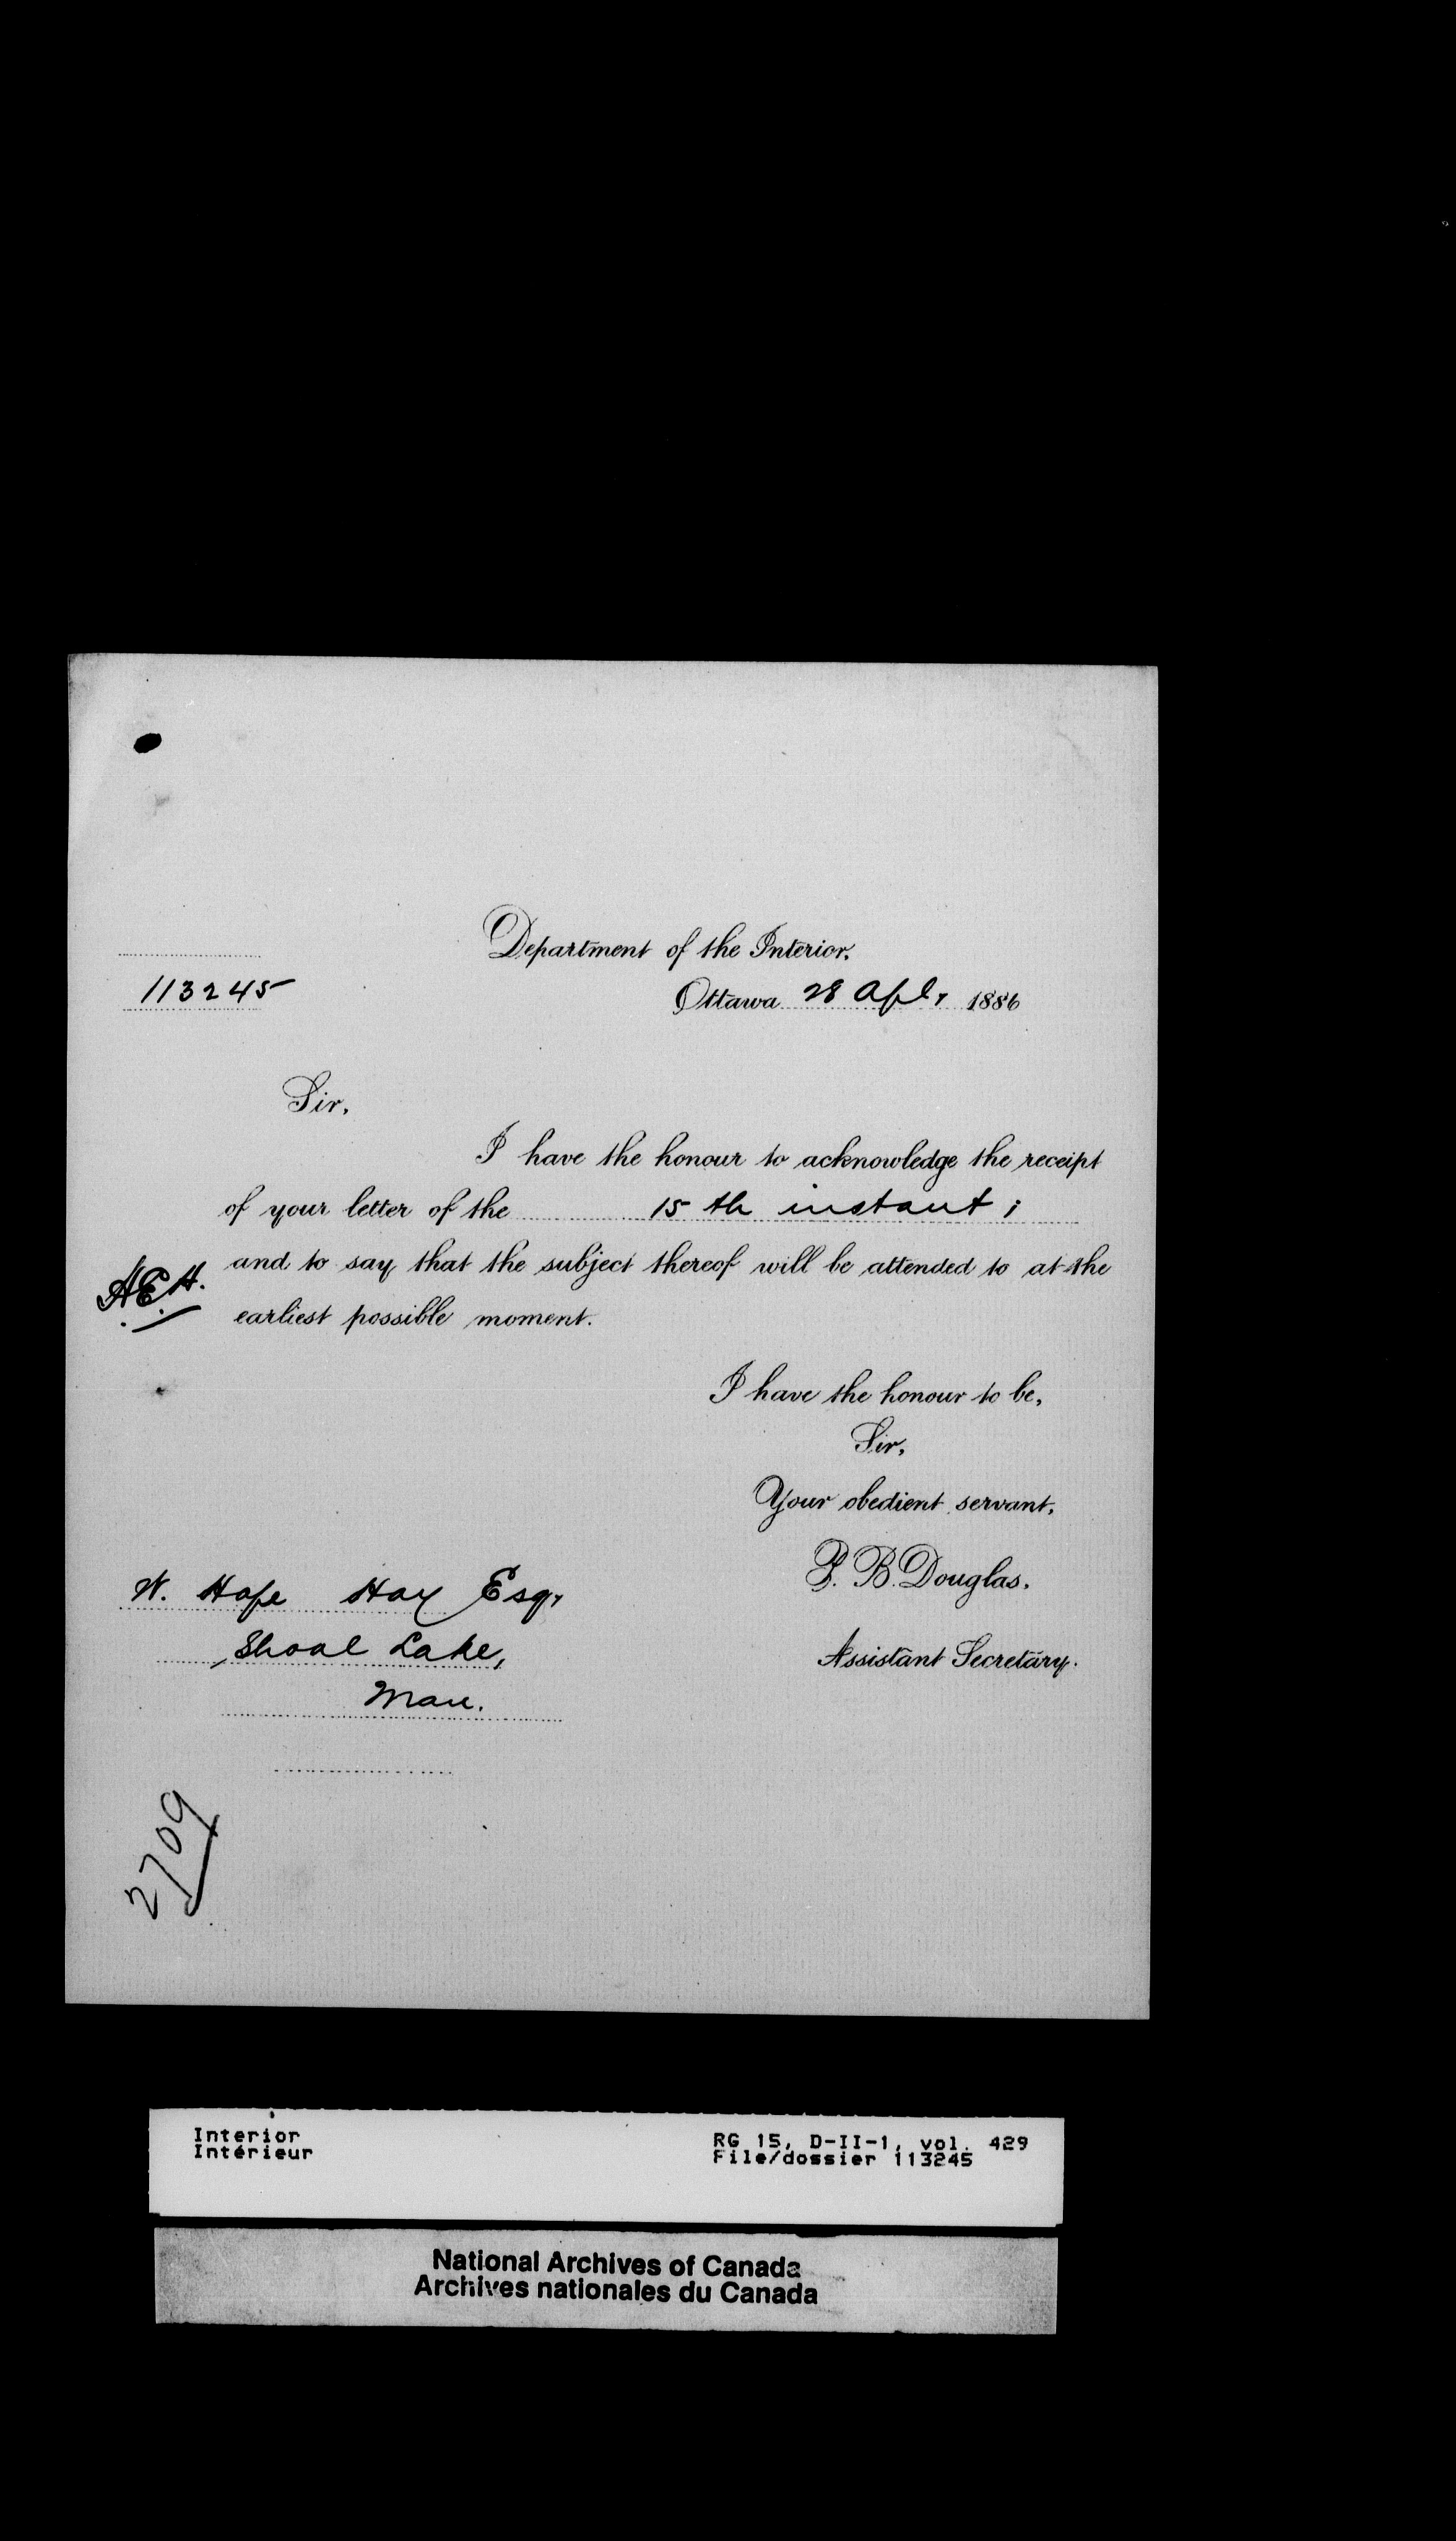 Department of the Interior.
113245
Ottawa 28 Apl, 1886
Sir,
I have the honour to acknowledge the receipt
of your letter of the 15 th instant;
and to say that the subject thereof will be attended to at the
A.E.H.
earliest possible moment.
I have the honour to be,
Sir,
Your obedient servant,
P. B. Douglas.
Assistant Secretary.
W. Hope Hay Esq,
Shoal Lake,
Man.
2709
Interior
Intérieur
RG 15, D-II-1, vol. 429
File/dossier 113245
National Archives of Canada
Archives nationales du Canada